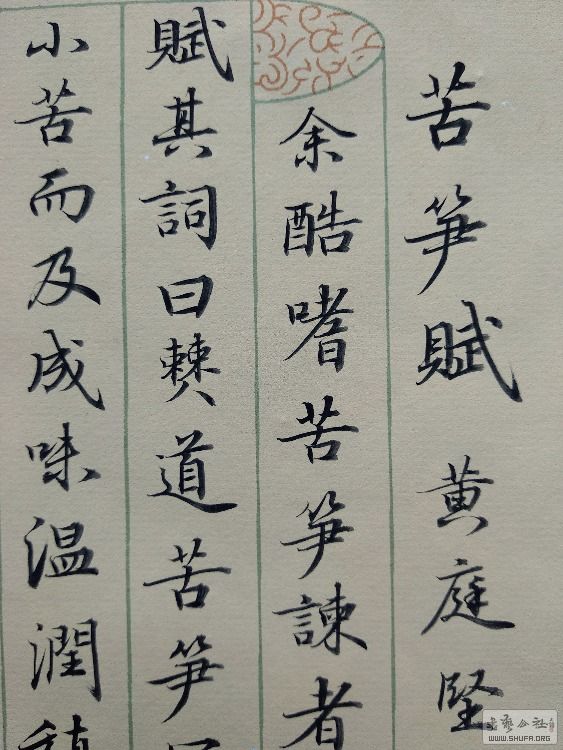 苦笋赋 黄庭坚
余酷嗜苦笋諫者
赋其詞曰僰道苦笋
小苦而及成味温潤
WWW.SHUFA.ORG